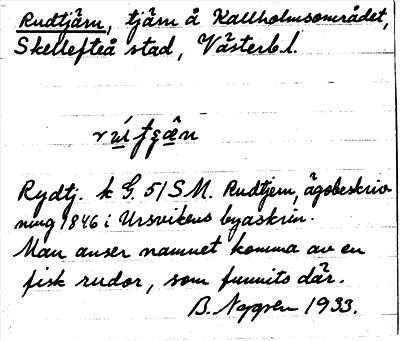 Rudtjärn, tjärn å Kallholmsområdet,
Skellefteå stad, Västerb.l.
Rydtj. k G. 51 S M. Rudtjern, ägobeskriv
ning 1846 i Ursvikens byaskrin.
Man anser namnet komma av en
fisk rudor, som funnits där.
B. Nygren 1933.